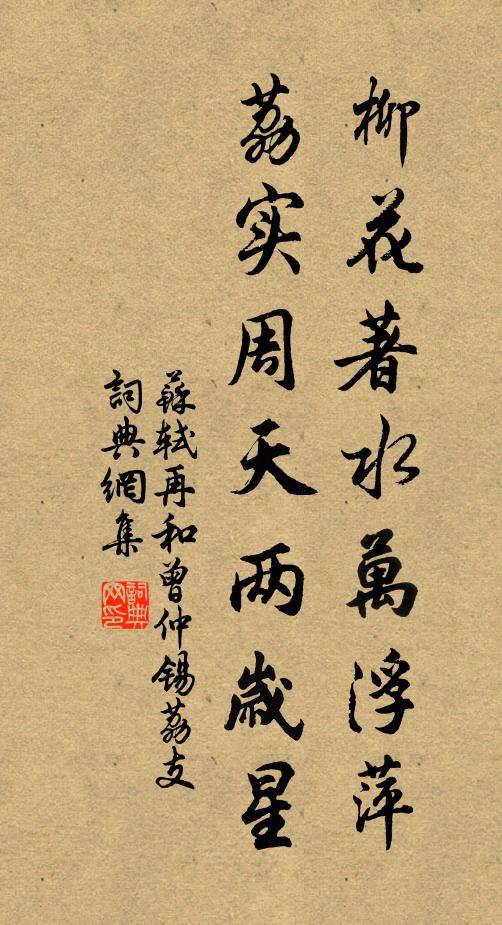 柳花著水萬浮萍
荔实周天两歲星
蘇軾再和曾仲錫荔支
詞典網集
詞典網印